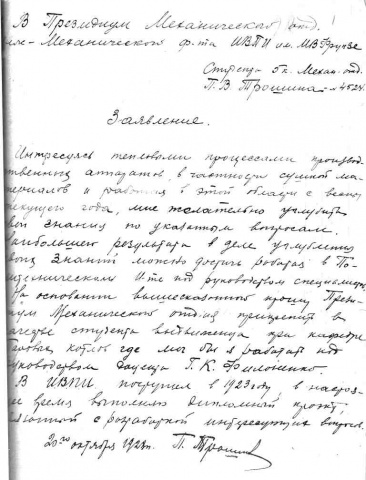 В Президиум Механического отд.
-Механического ф-та ИВПИ им. МВ Фрунзе
Студента 5 к. Механ. отд.
П. В Трошина
Заявление.
Интересуясь тепловыми процессами производ-
ственных аппаратов, в частности сушкой ма-
териалов и работая в этой области с весны
текущего года, мне желательно углубить
свои знания по указанным вопросам.
Наибольшего результата в деле углубления
своих знаний можно достичь работая в По-
литехническом И-те под руководством специалиста.
На основании вышесказанного прошу Прези-
диум Механического отд-ия прикрепить в
качестве студента выдвиженца при кафедре
паровых котлов где мог бы я работать под
руководством доцента Г. К. Филоненко.
В ИВПИ поступил в 1923 году, в настоя-
ее время выполняю дипломный проект,
связанный с разработкой интересующих вопросов.
20го октября 1928 г. П. Трошин